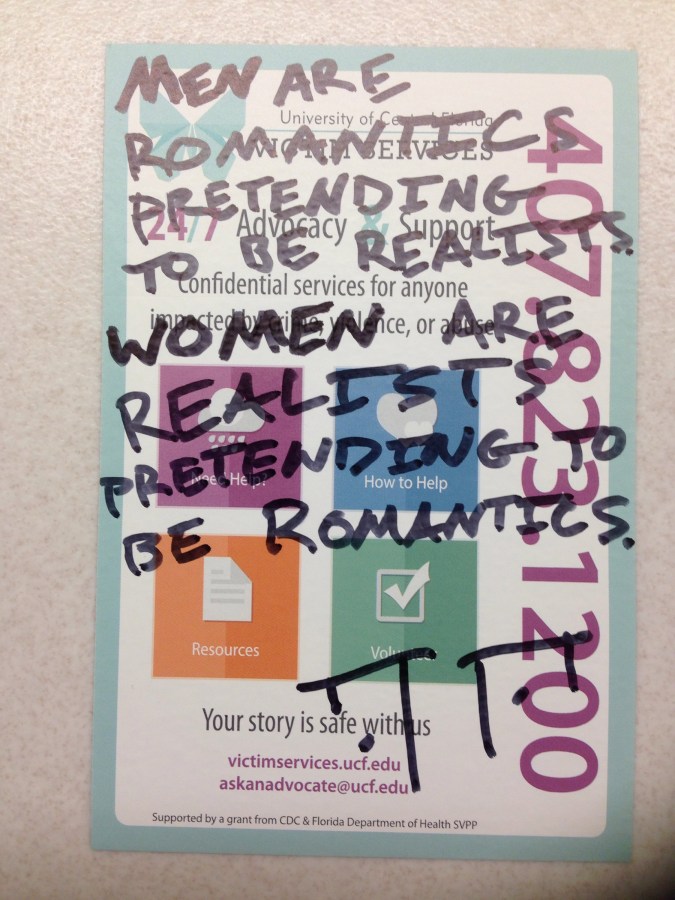 MEN ARE
ROMANTICS
PRETENDING
TO BE REALISTS.
WOMEN ARE
REALISTS
PRETENDING TO
BE ROMANTICS.
University of Central Florida
VICTIM SERVICES
24/7 Advocacy & Support
Confidential services for anyone
impacted by crime, violence, or abuse
Need Help?
How to Help
Resources
Volunteer
Your story is safe with us
victimservices.ucf.edu
askanadvocate@ucf.edu
Supported by a grant from CDC & Florida Department of Health SVPP
407.823.1200